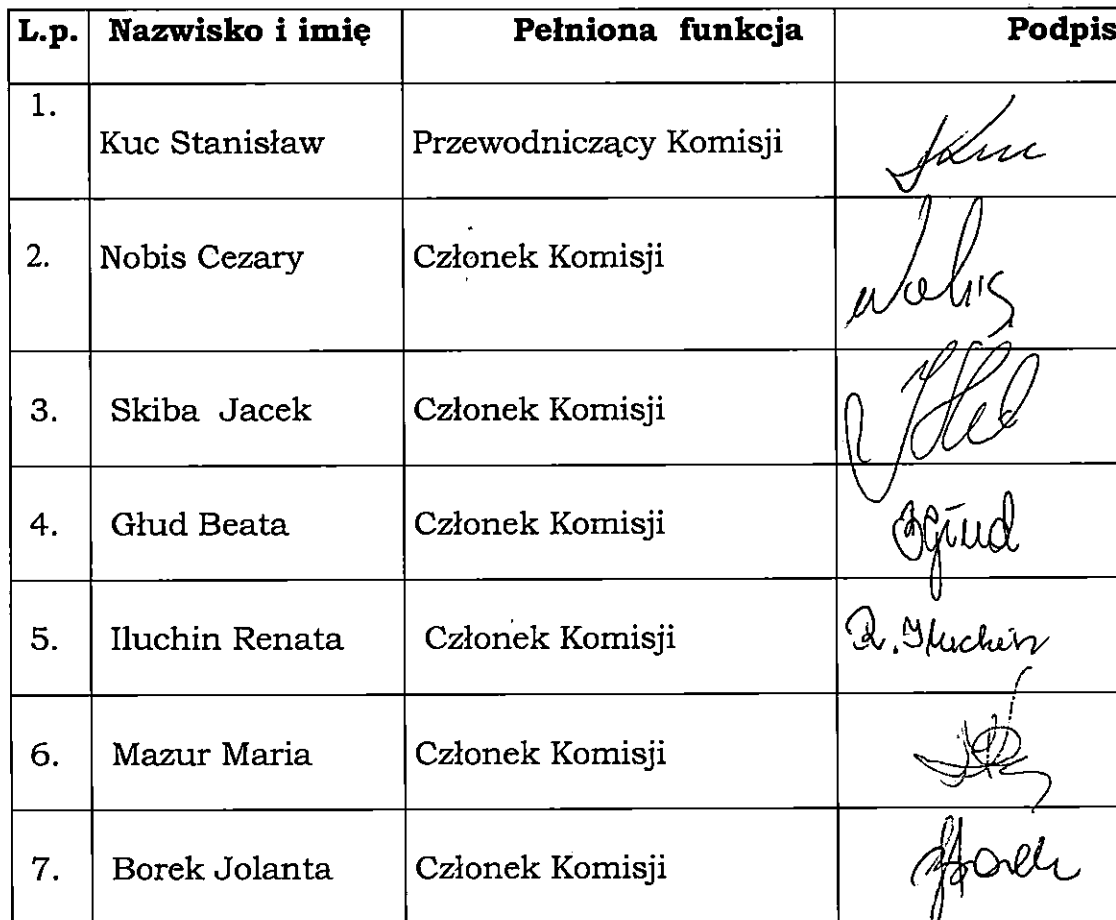 L.p. Nazwisko i imię Pełniona funkcja Podpis
1. Kuc Stanisław Przewodniczący Komisji Kuc
2. Nobis Cezary Członek Komisji Nobis
3. Skiba Jacek Członek Komisji
4. Głud Beata Członek Komisji BGłud
5. Iluchin Renata Członek Komisji R. Iluchin
6. Mazur Maria Członek Komisji
7. Borek Jolanta Członek Komisji JBorek